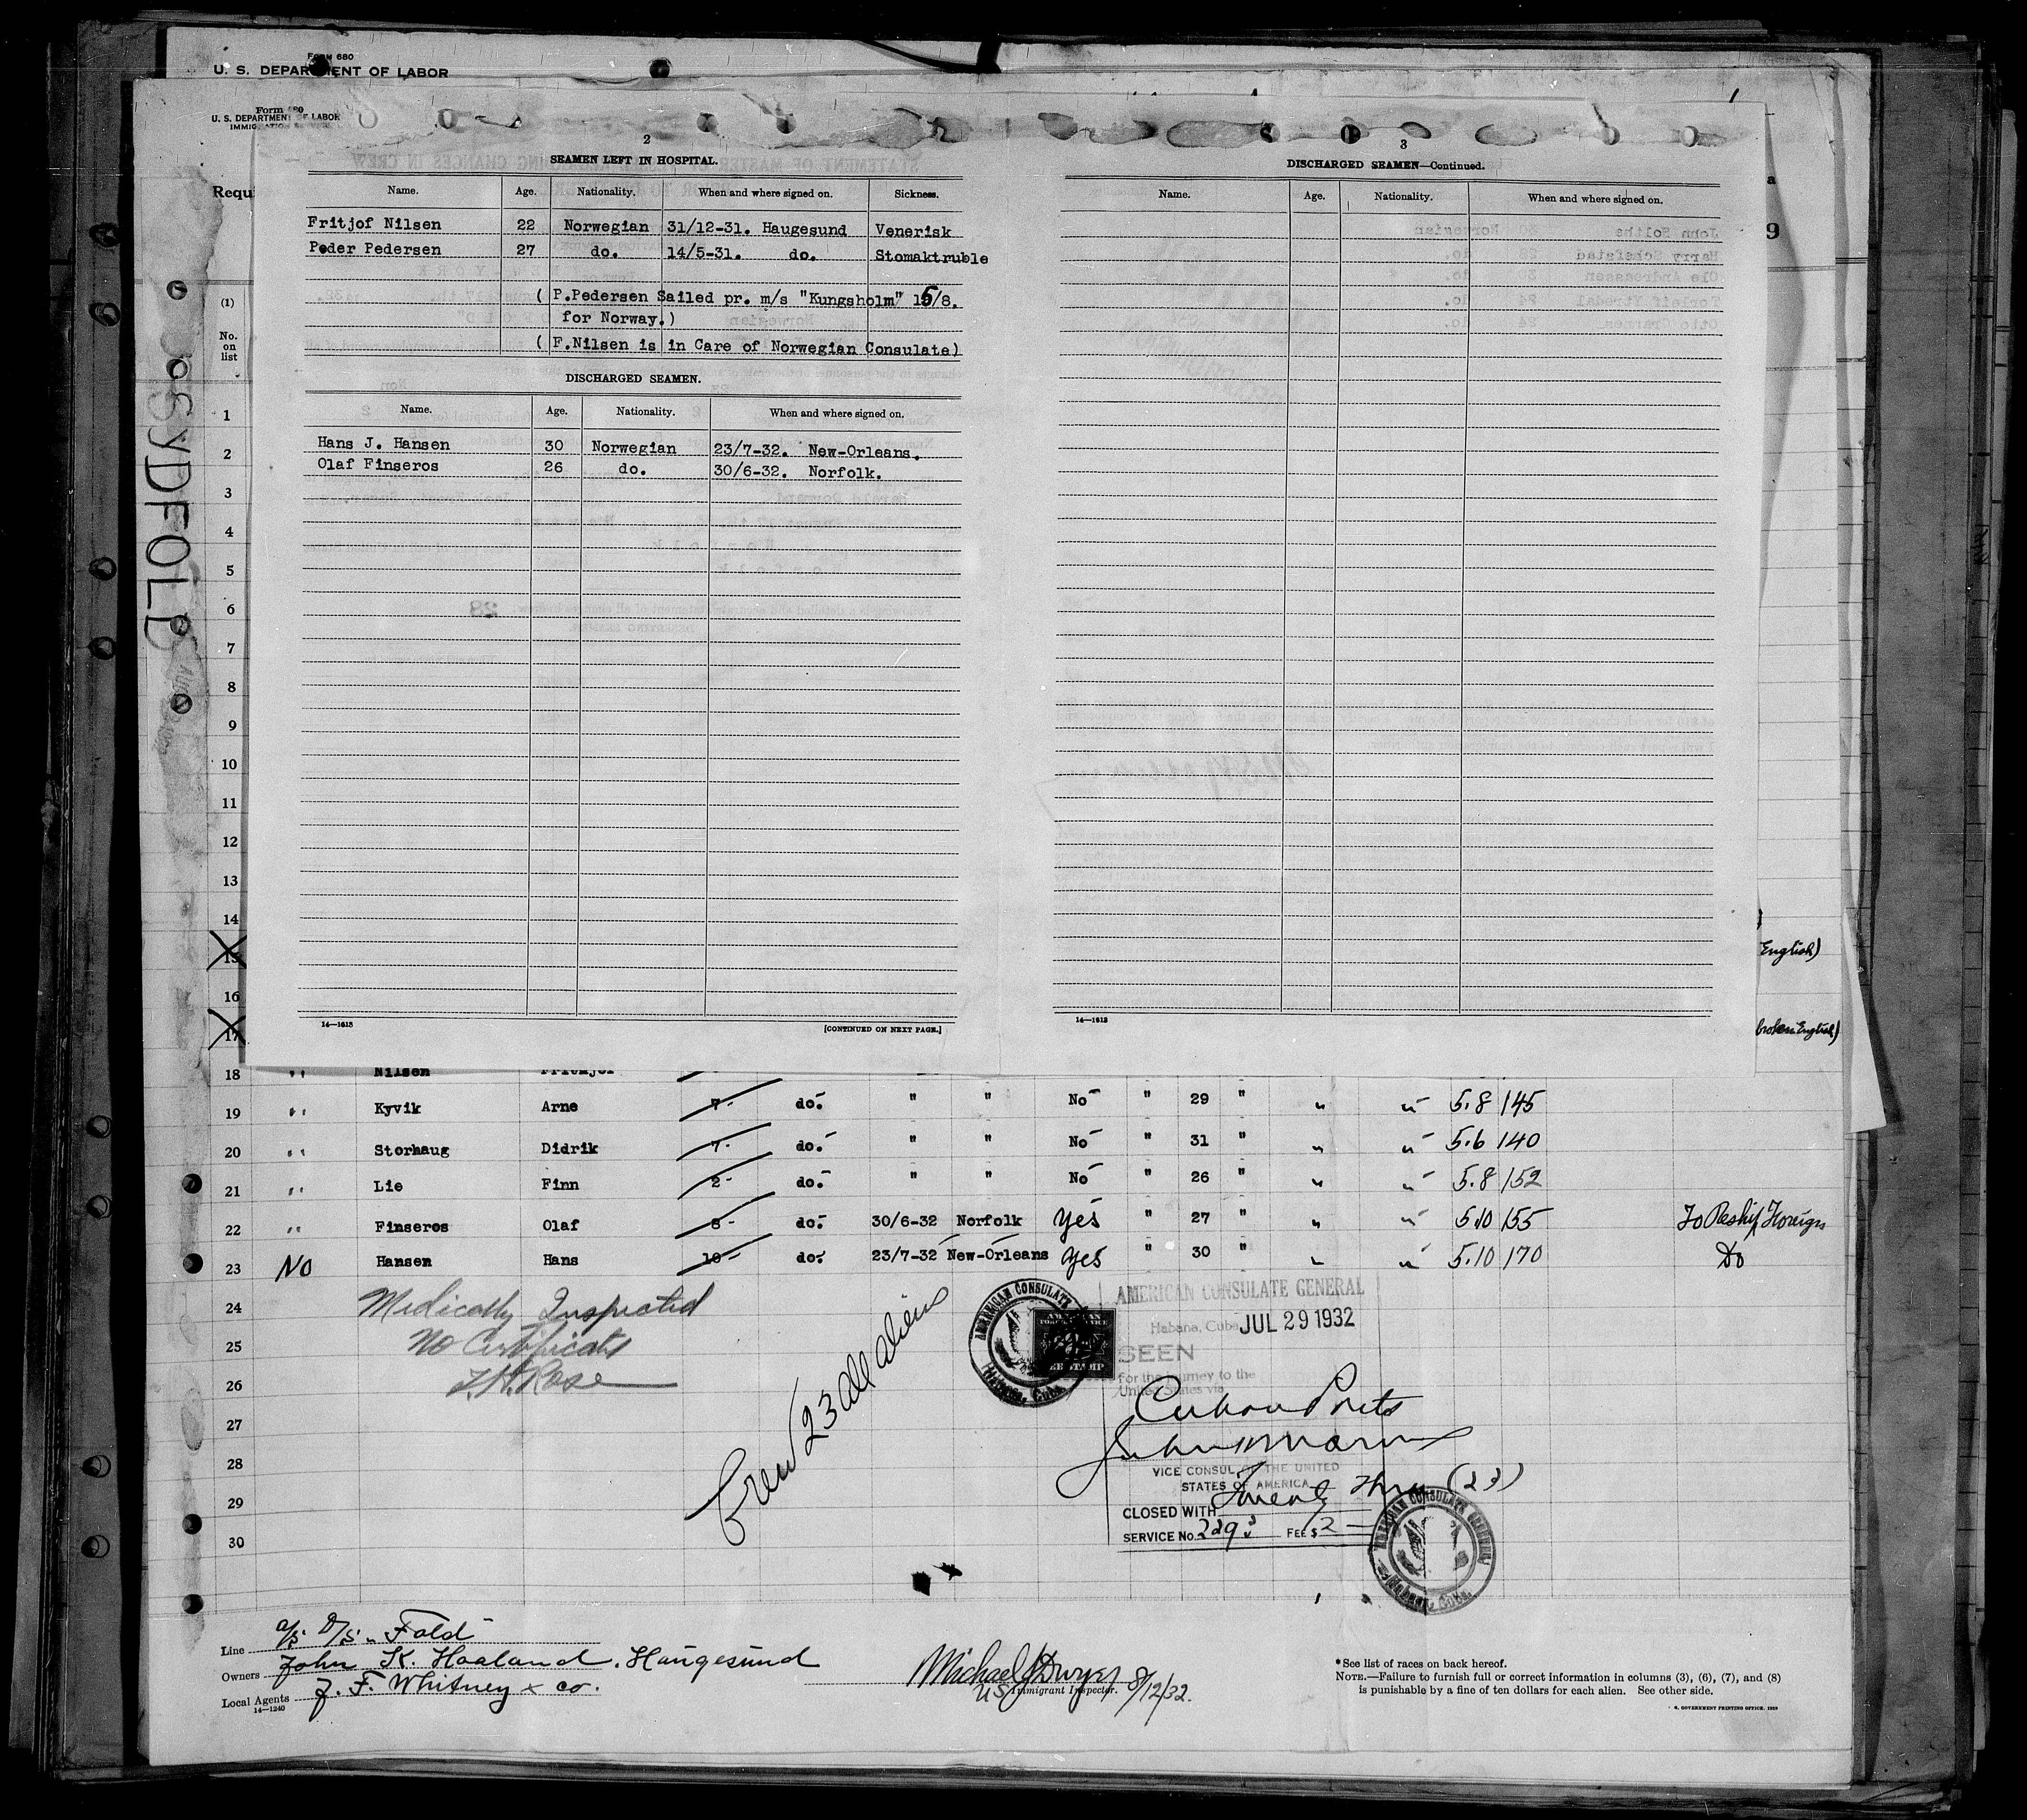 Form 680
U. S. DEPARTMENT OF LABOR
Form 680
U. S. DEPARTMENT OF LABOR
Requi
SYDFOLD
(1)
No. on list
2
SEAMEN LEFT IN HOSPITAL.
Name. Age. Nationality. When and where signed on. Sickness.
Fritjof Nilsen 22 Norwegian 31/12-31. Haugesund Venerisk
Peder Pedersen 27 do. 14/5-31. do. Stomaktruble
( P.Pedersen Sailed pr. m/s "Kungsholm" 15/8.
for Norway.)
( F.Nilsen is in Care of Norwegian Consulate)
DISCHARGED SEAMEN.
Name. Age. Nationality. When and where signed on.
Hans J. Hansen 30 Norwegian 23/7-32. New-Orleans.
Olaf Finseros 26 do. 30/6-32. Norfolk.
14—1613 [CONTINUED ON NEXT PAGE.]
3
DISCHARGED SEAMEN—Continued.
Name. Age. Nationality. When and where signed on.
14—1613
a
9
1
2
3
4
5
6
7
8
9
10
11
12
13
14
15 English)
16
17 broken English)
18 " Nilsen Frithjof
19 " Kyvik Arne 7- do. " " No " 29 " " " 5.8 145
20 " Storhaug Didrik 7- do. " " No " 31 " " " 5.6 140
21 " Lie Finn 2- do. " " No " 26 " " " 5.8 152
22 " Finseros Olaf 8- do. 30/6-32 Norfolk Yes " 27 " " " 5.10 155 To Reship Foreign
23 No Hansen Hans 10- do. 23/7-32 New-Orleans Yes " 30 " " " 5.10 170 Do
24
25
26
27
28
29
30
Medically Inspected
No Certificate
Rose
Crew 23 all aliens
AMERICAN CONSULATE
Habana, Cuba
AMERICAN CONSULATE GENERAL
Habana, Cuba JUL 29 1932
SEEN
for the journey to the
United States via
Cuban Ports
VICE CONSUL OF THE UNITED
STATES OF AMERICA
CLOSED WITH Twenty Three (23)
SERVICE No. FEE $ 2—
AMERICAN CONSULATE GENERAL
Habana, Cuba.
Line a/s D/s. Fold
Owners John K. Haaland. Haugesund
Local Agents J. F. Whitney & co.
14—1240
Michael J Dwyer 8/12/32.
U.S. Immigrant Inspector.
*See list of races on back hereof.
NOTE.—Failure to furnish full or correct information in columns (3), (6), (7), and (8)
is punishable by a fine of ten dollars for each alien. See other side.
GOVERNMENT PRINTING OFFICE